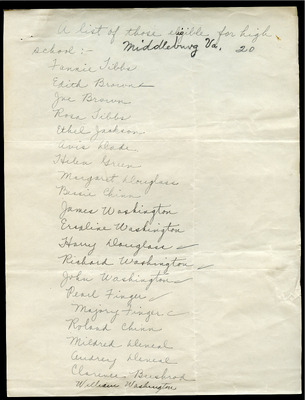 A list of those eligible for high
school :- Middleburg Va. 20
Fannie Tibbs
Edith Brown
Joe Brown
Rosa Tibbs
Ethel Jackson
Avis Dade
Helen Green
Margaret Douglass
Bessie Chinn
James Washington
Ersaline Washington
Harry Douglass
Richard Washington
John Washington
Pearl Finger
Majory Finger
Roland Chinn
Mildred Deneal
Audrey Deneal
Clarence
William Washington